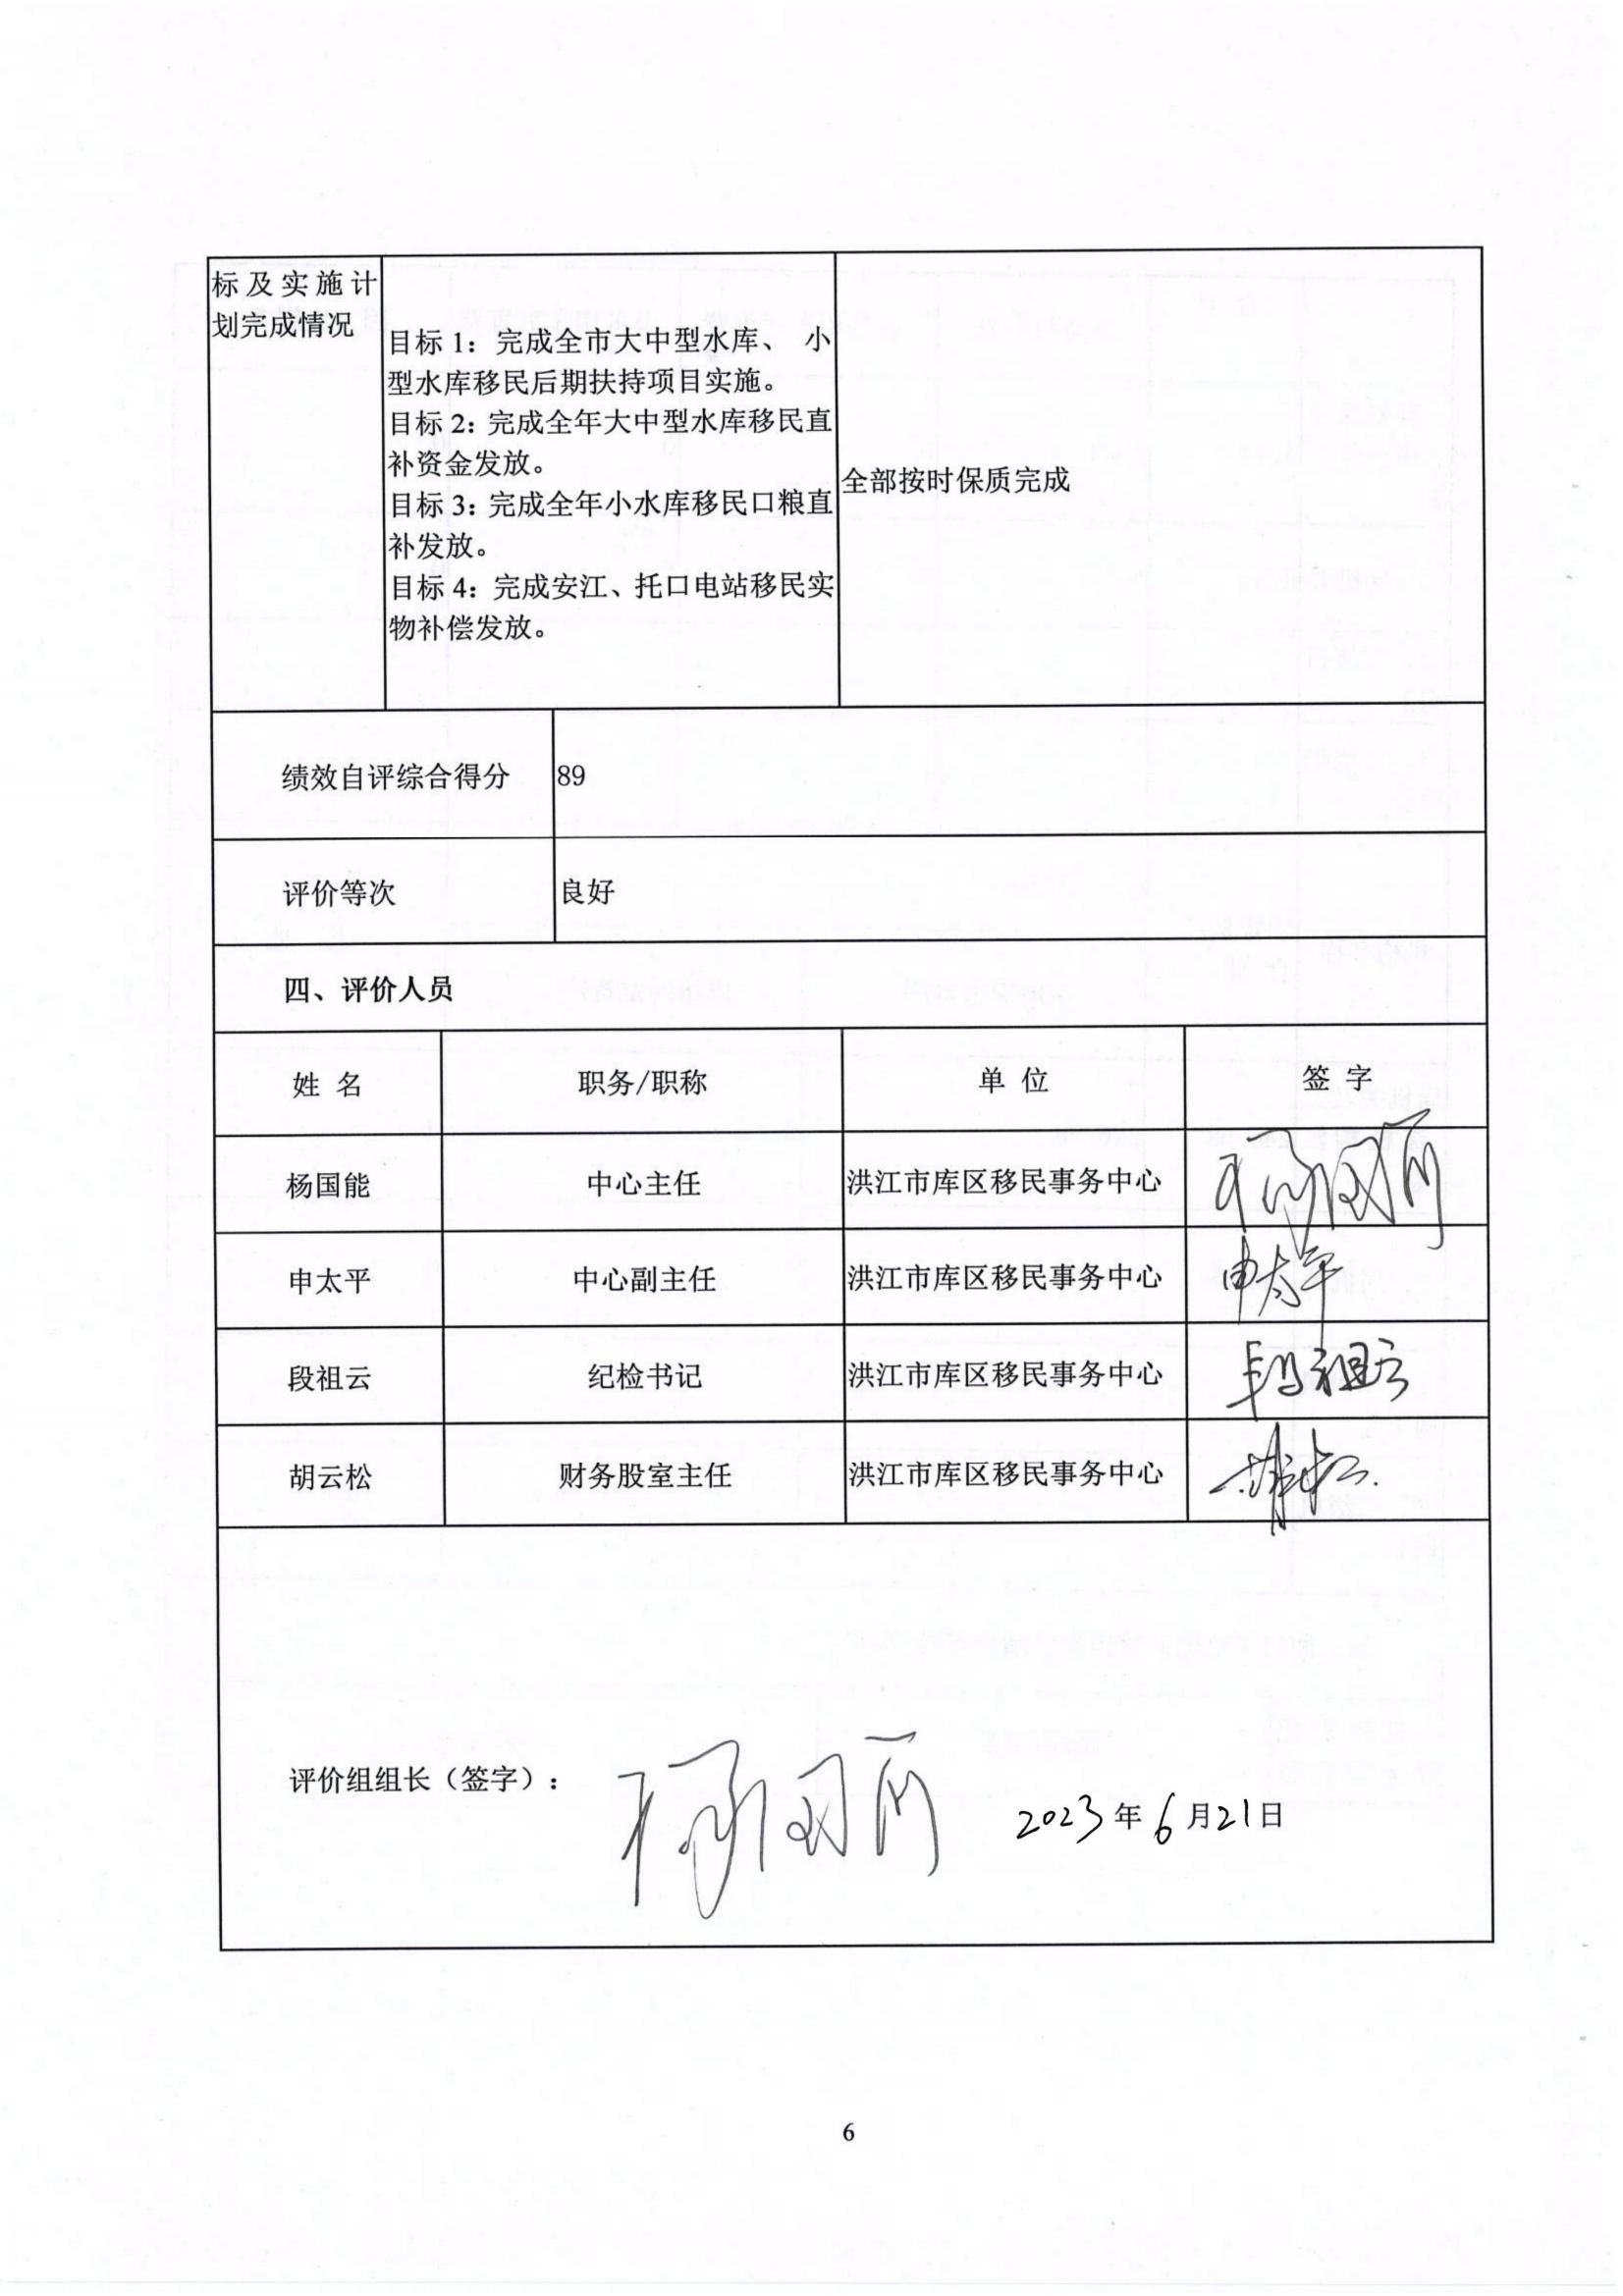 标及实施计
划完成情况
目标 1：完成全市大中型水库、 小
型水库移民后期扶持项目实施。
目标 2：完成全年大中型水库移民直
补资金发放。
目标 3：完成全年小水库移民口粮直
补发放。
目标 4：完成安江、托口电站移民实
物补偿发放。
全部按时保质完成
绩效自评综合得分 89
评价等次 良好
四、评价人员
姓 名 职务/职称 单 位 签 字
杨国能 中心主任 洪江市库区移民事务中心
申太平 中心副主任 洪江市库区移民事务中心 申太平
段祖云 纪检书记 洪江市库区移民事务中心 段祖云
胡云松 财务股室主任 洪江市库区移民事务中心
评价组组长（签字）：
2023 年 6 月 21 日
6